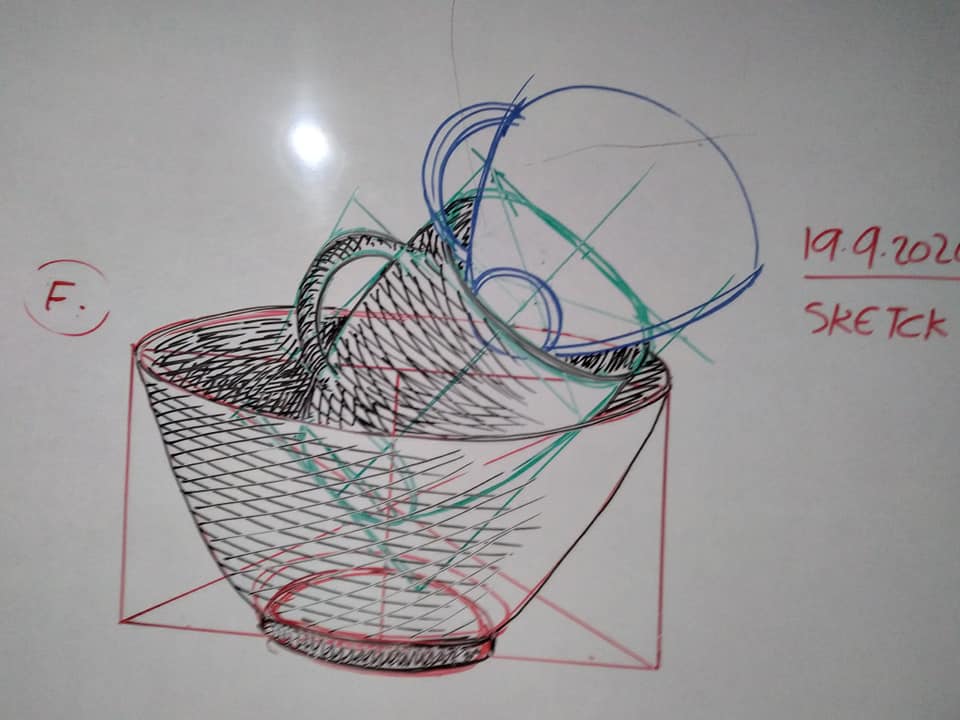 F.
19.9.202
SKETCK